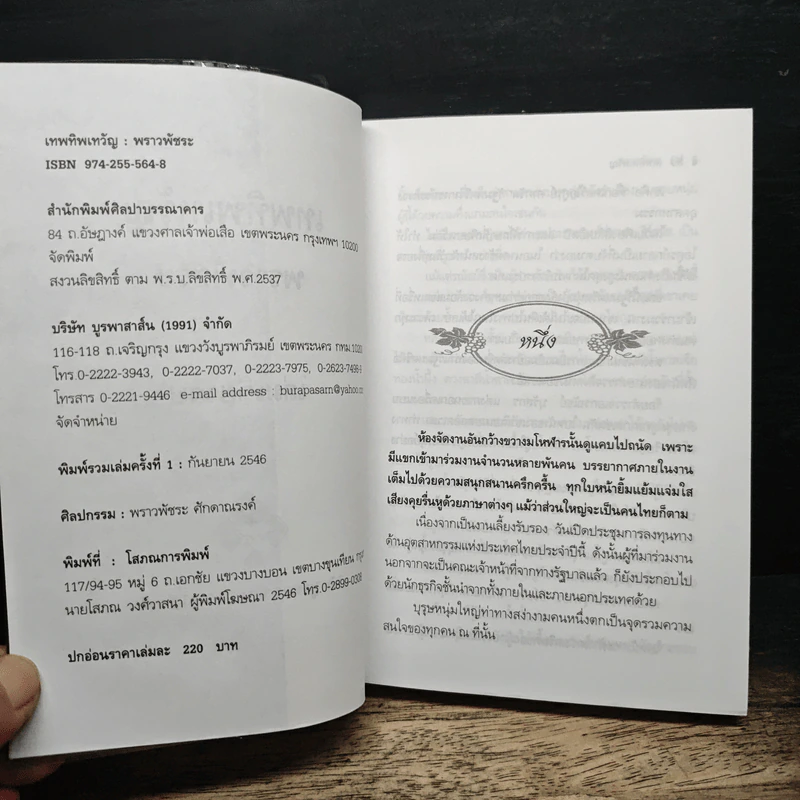 เทพทิพเทวัญ : พราวพัชระ
ISBN 974-255-564-8
สำนักพิมพ์ศิลปาบรรณาคาร
84 ถ.อัษฎางค์ แขวงศาลเจ้าพ่อเสือ เขตพระนคร กรุงเทพฯ 10200
จัดพิมพ์
สงวนลิขสิทธิ์ ตาม พ.ร.บ.ลิขสิทธิ์ พ.ศ.2537
บริษัท บูรพาสาส์น (1991) จำกัด
116-118 ถ.เจริญกรุง แขวงวังบูรพาภิรมย์ เขตพระนคร กทม.10200
โทร.0-2222-3943, 0-2222-7037, 0-2223-7975, 0-2623-7498-9
โทรสาร 0-2221-9446 e-mail address : burapasarn@yahoo.co
จัดจำหน่าย
พิมพ์รวมเล่มครั้งที่ 1 : กันยายน 2546
ศิลปกรรม : พราวพัชระ ศักดาณรงค์
พิมพ์ที่ : โสภณการพิมพ์
117/94-95 หมู่ 6 ถ.เอกชัย แขวงบางบอน เขตบางขุนเทียน
นายโสภณ วงศ์วาสนา ผู้พิมพ์โฆษณา 2546 โทร.0-2899-0306
ปกอ่อนราคาเล่มละ 220 บาท
หนึ่ง
ห้องจัดงานอันกว้างขวางมโหฬารนั้นดูแคบไปถนัด เพราะ
มีแขกเข้ามาร่วมงานจำนวนหลายพันคน บรรยากาศภายในงาน
เต็มไปด้วยความสนุกสนานครึกครื้น ทุกใบหน้ายิ้มแย้มแจ่มใส
เสียงคุยรื่นหูด้วยภาษาต่างๆ แม้ว่าส่วนใหญ่จะเป็นคนไทยก็ตาม
เนื่องจากเป็นงานเลี้ยงรับรอง วันเปิดประชุมการลงทุนทาง
ด้านอุตสาหกรรมแห่งประเทศไทยประจำปีนี้ ดังนั้นผู้ที่มาร่วมงาน
นอกจากจะเป็นคณะเจ้าหน้าที่จากทางรัฐบาลแล้ว ก็ยังประกอบไป
ด้วยนักธุรกิจชั้นนำจากทั้งภายในและภายนอกประเทศด้วย
บุรุษหนุ่มใหญ่ท่าทางสง่างามคนหนึ่งตกเป็นจุดรวมความ
สนใจของทุกคน ณ ที่นั้น